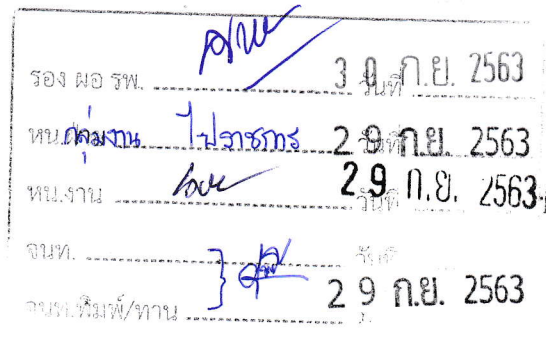 รอง ผอ รพ. วันที่ 30 ก.ย. 2563
หน.กลุ่มงาน ไปราชการ วันที่ 29 ก.ย. 2563
หน.งาน วันที่ 29 ก.ย. 2563
จนท. วันที่
จนท.พิมพ์/ทาน 29 ก.ย. 2563